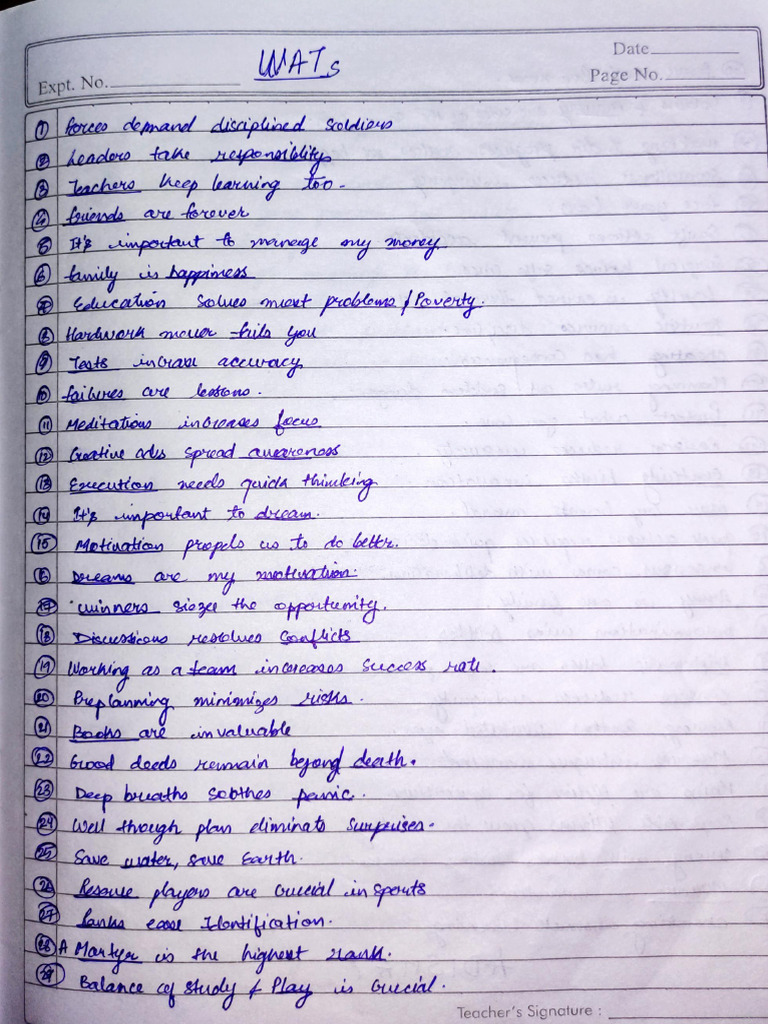 WATs
Date
Expt. No.
Page No.
① Forces demand disciplined soldiers
② Leaders take responsiblity
③ Teachers keep learning too.
④ friends are forever
⑤ It's important to manage my money
⑥ family is happiness
⑦ Education solves most problems / Poverty.
⑧ Hardwork never fails you
⑨ Tests increase accuracy
⑩ failures are lessons.
⑪ Meditations increases focus
⑫ Creative ads spread awareness
⑬ Execution needs quick thinking
⑭ It's important to dream.
⑮ Motivation propels us to do better.
⑯ Dreams are my motivation.
⑰ winners siezee the opportunity.
⑱ Discussions resolves conflicts
⑲ Working as a team increases success rate.
⑳ Preplanning minimizes risks.
㉑ Books are invaluable
㉒ Good deeds remain beyond death.
㉓ Deep breaths sobthes panic.
㉔ Well though plan eliminate surprises.
㉕ Save water, save Earth.
㉖ Reserve players are crucial in sports
㉗ Ranks ease Identification.
㉘ A Martyr is the highest rank.
㉙ Balance of study & Play is crucial.
Teacher's Signature :